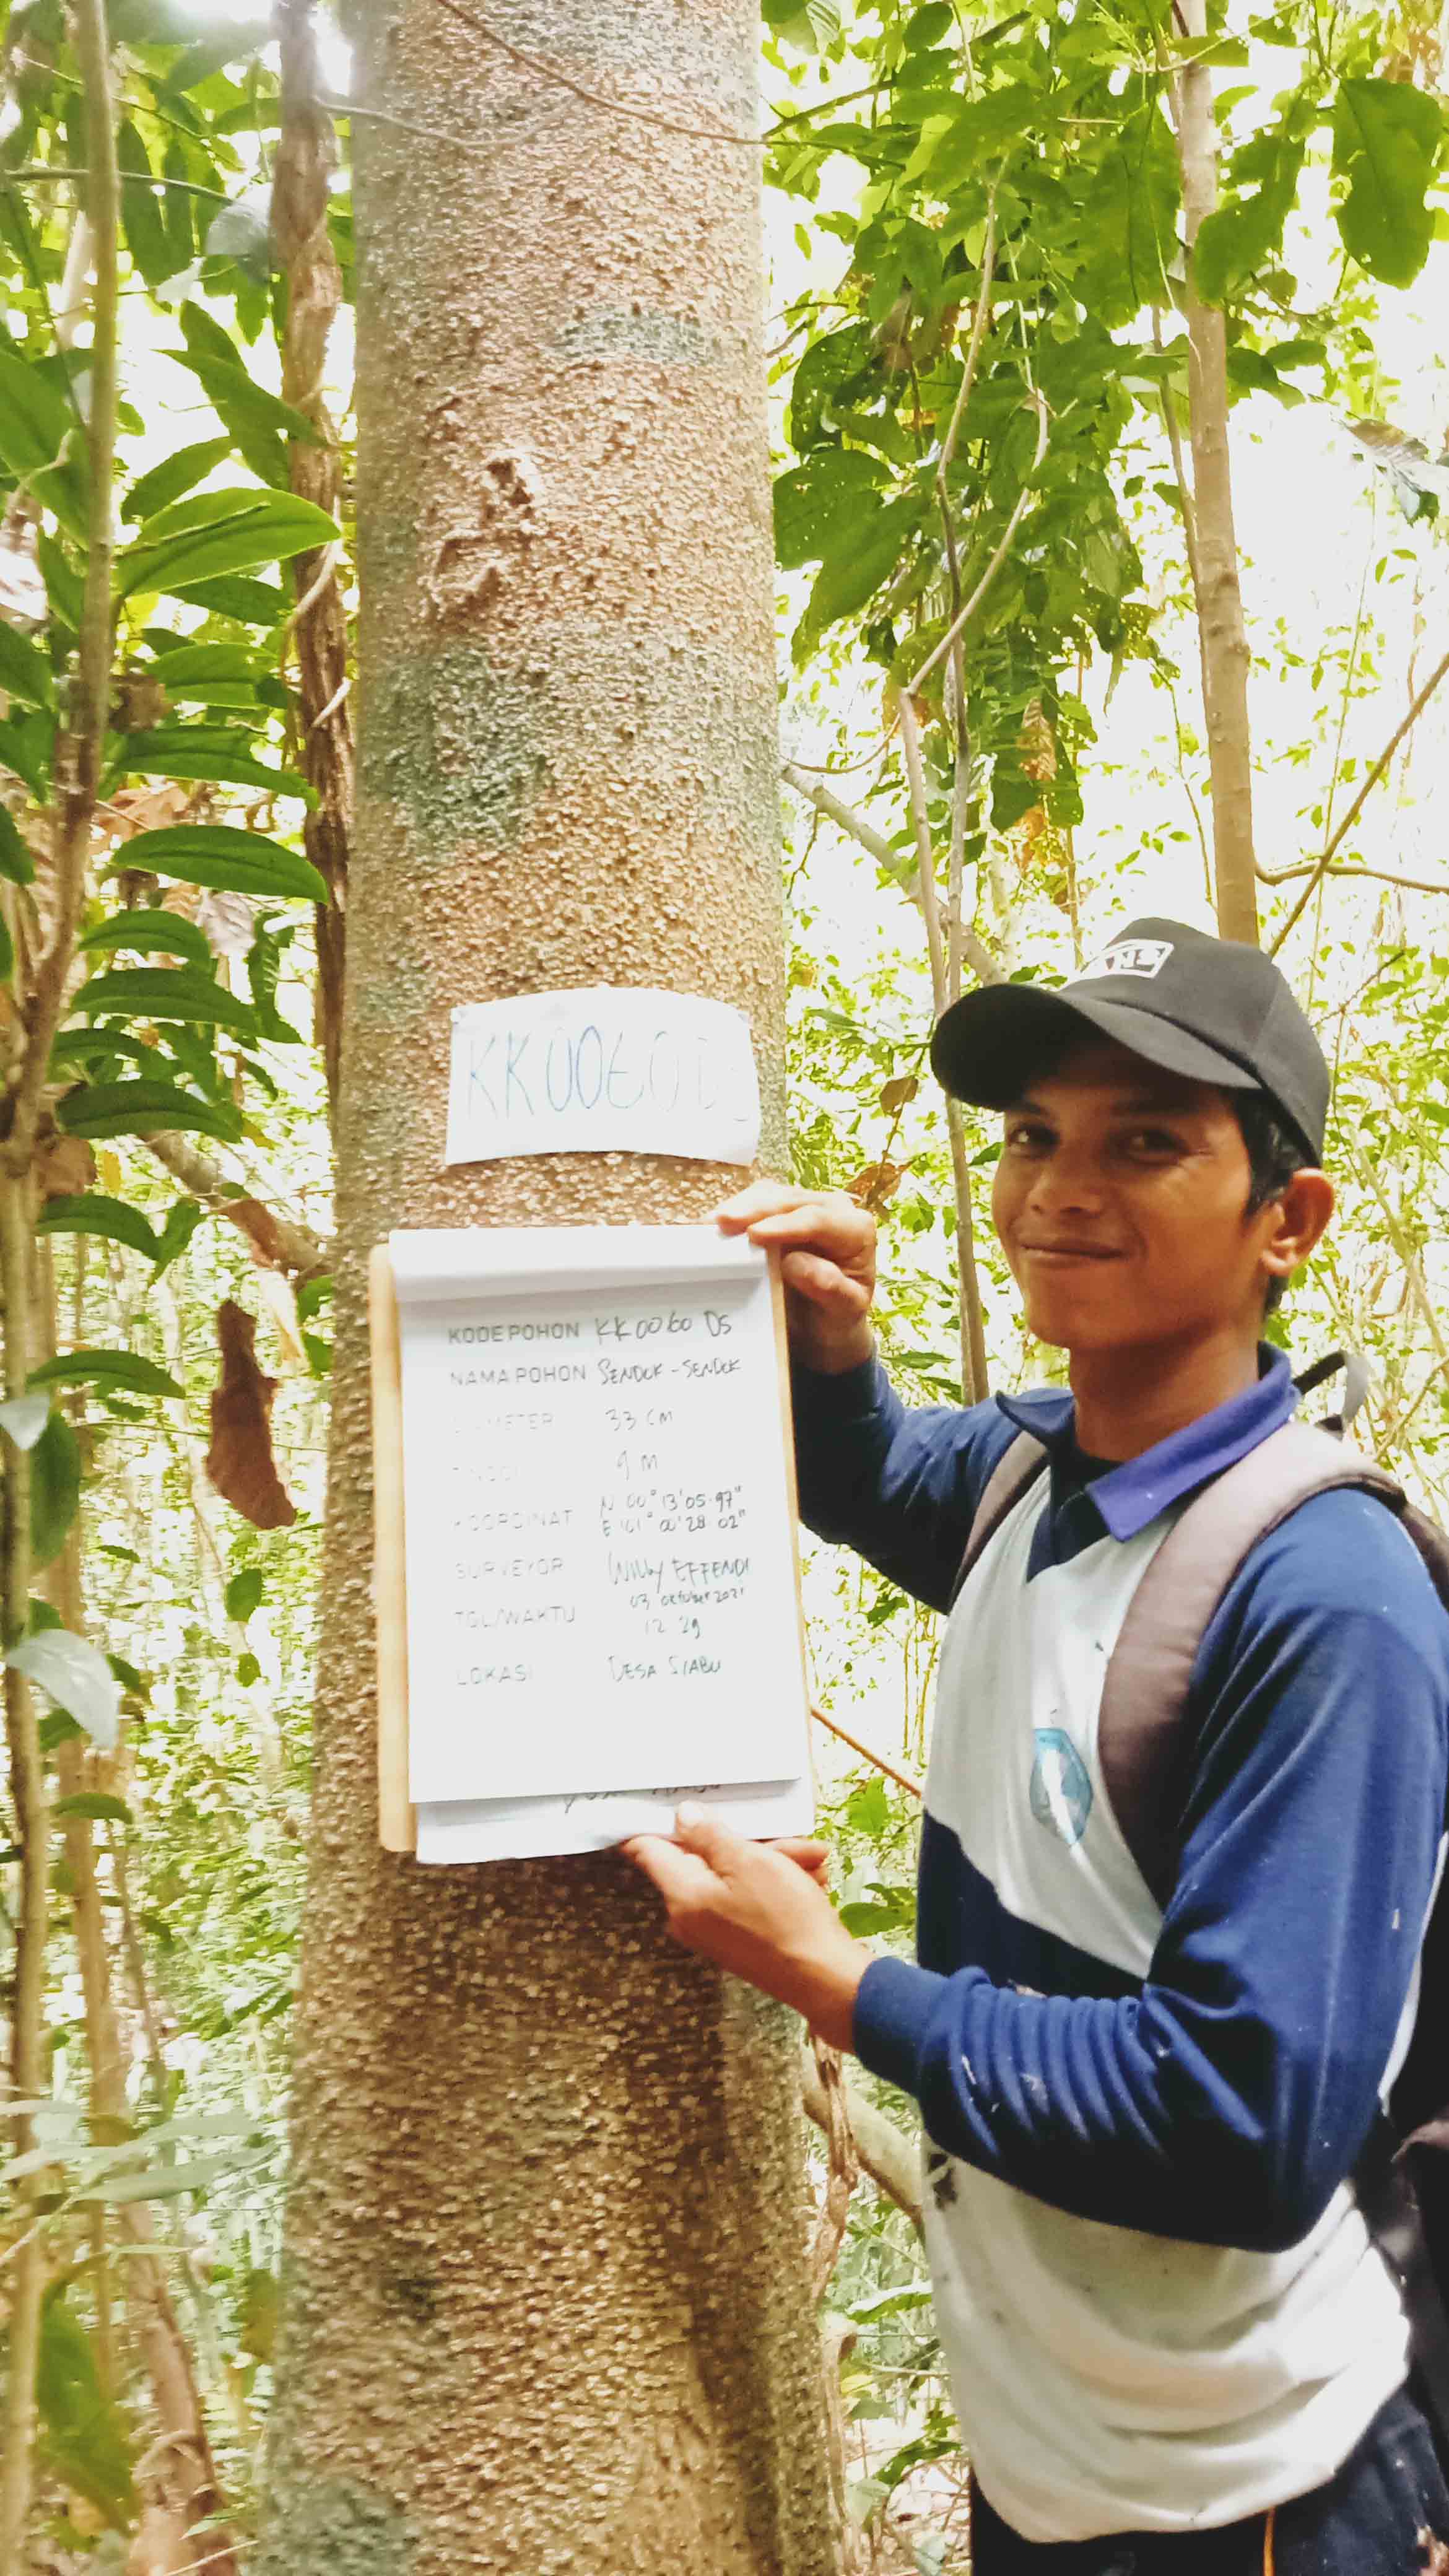 KK0060 DS
KODE POHON KK0060 DS
NAMA POHON SENDOK - SENDOK
DIAMETER 33 CM
TINGGI 9 M
KOORDINAT N 00° 13' 05.97"
E 101° 00' 28.02"
SURVEYOR WILLY EFFENDI
TGL/WAKTU 03 Oktober 2021
12 29
LOKASI DESA SIABU